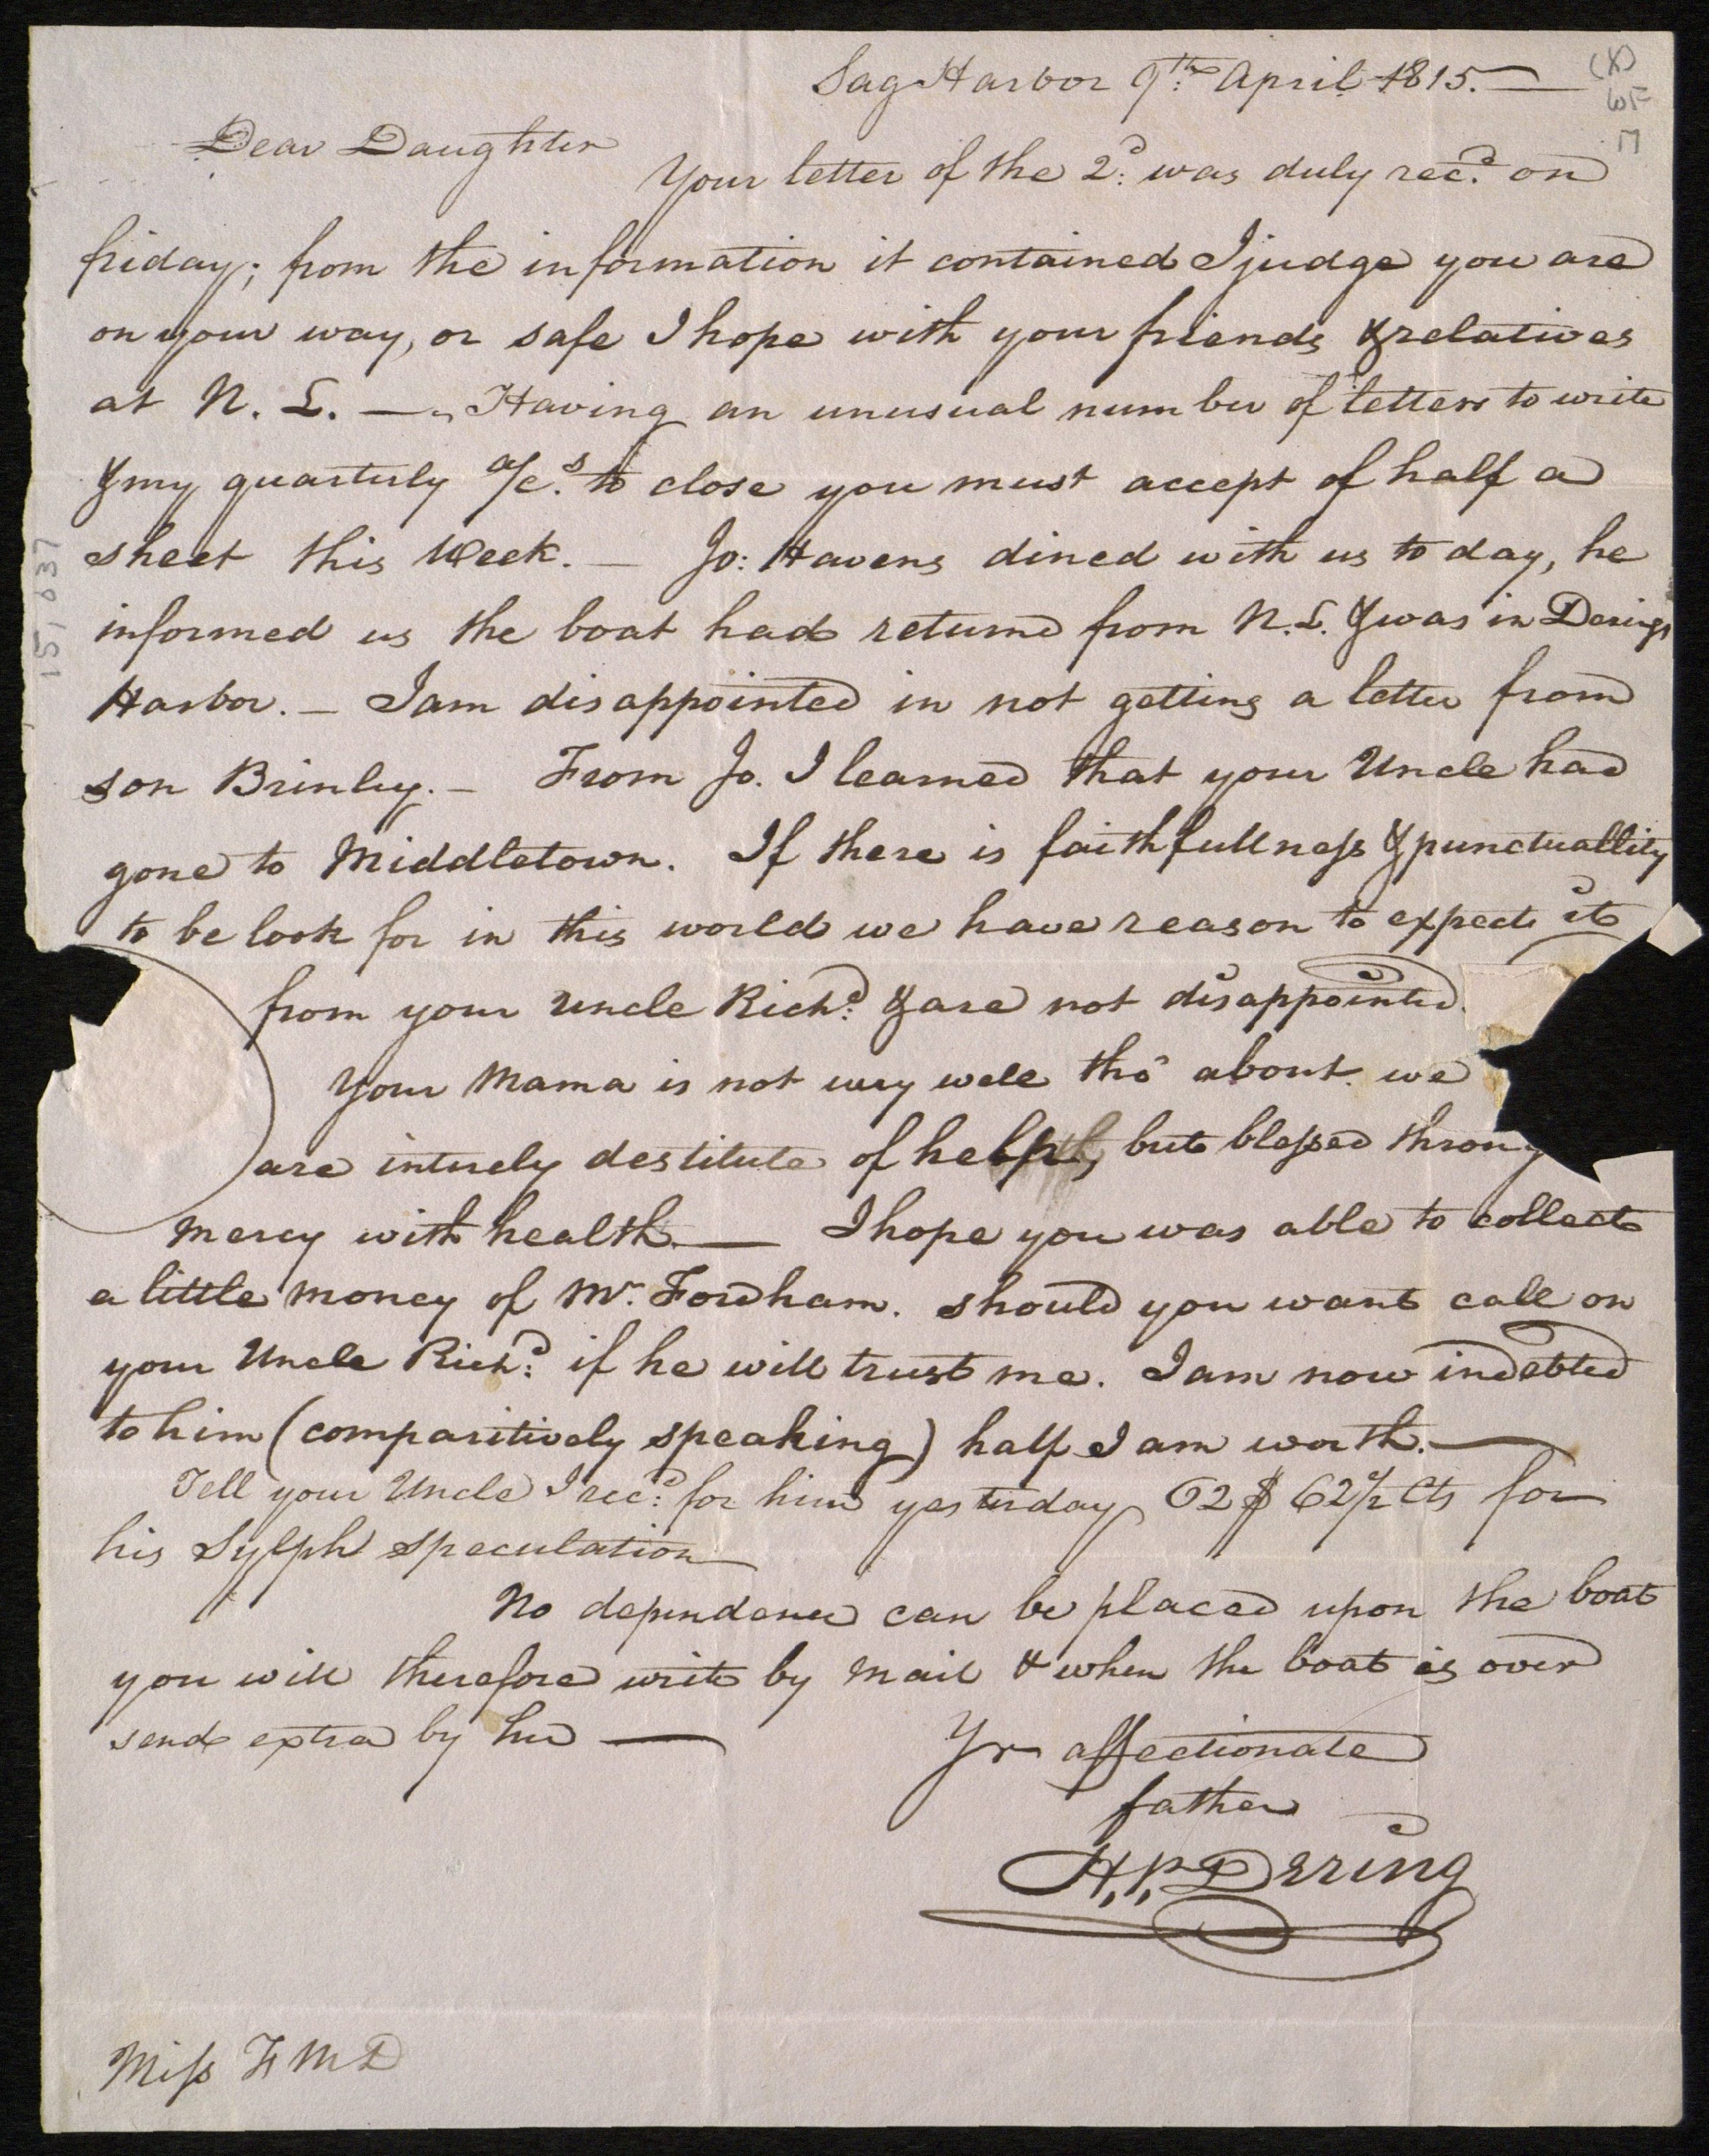 Sag Harbor 9th: April 1815.—
(X)
WF
Dear Daughter
Your letter of the 2d: was duly recd. on
friday; from the information it contained I judge you are
on your way, or safe I hope with your friends & relatives
at N. L. — Having an unusual number of letters to write
& my quarterly a/cs. to close you must accept of half a
sheet this Week. — Jo: Havens dined with us to day, he
informed us the boat had returnd from N. L. & was in Derings
Harbor. — I am disappointed in not getting a letter from
son Brinley. — From Jo. I learned that your Uncle had
gone to Middletown. If there is faithfullness & punctuallity
to be look for in this world we have reason to expect it
from your Uncle Richd: & are not disappointed.
Your Mama is not very well tho' about. we
are intirely destitute of help, but blessed throug
mercy with health. — I hope you was able to collect
a little money of Mr. Fordham. should you want call on
your Uncle Richd: if he will trust me. I am now indebted
to him (comparitively speaking) half I am worth. —
Tell your Uncle I recd: for him yesterday 62$ 62½ Cts for
his Sylph speculation
No dependence can be placed upon the boat
you will therefore write by mail & when the boat is over
send extra by her —
Yr affectionate
father
H. P. Dering
Miss F M D
151037